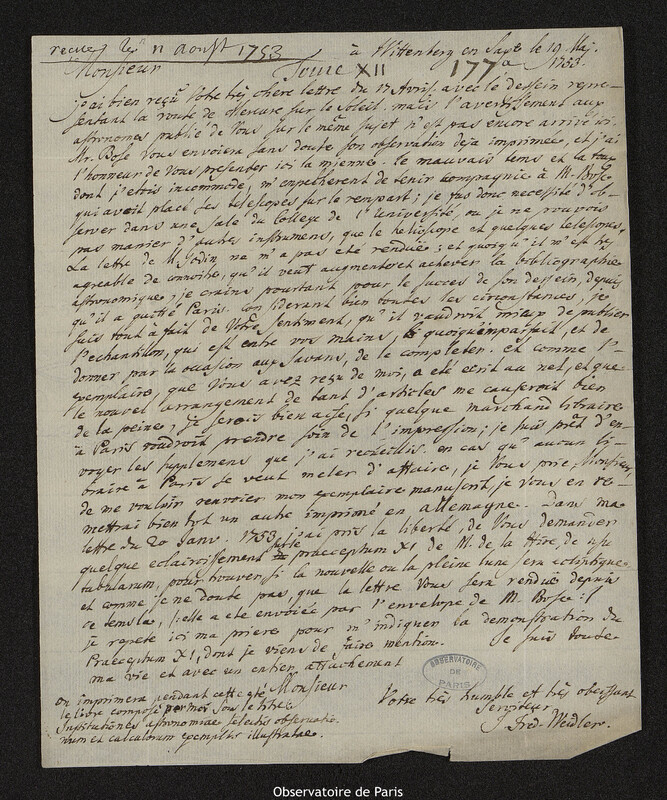 recue le 11 aoust 1753
à Wittenberg en Saxe le 19 Maj.
1753.
Monsieur
Tome XII
177a
j'ai bien reçu Votre très chere lettre du 17 Avril, avec le dessein repre-
sentant la route de Mercure sur le Soleil. mais l'avertissement aux
astronomes publié de Vous sur le même sujet n'est pas encore arrivé ici.
Mr. Bose Vous envoiera sans doute son observation deja imprimée, et j'ai
l'honneur de Vous presenter ici la mienne. le mauvais tems et la toux
dont j'etois incommodé, m'empecherent de tenir compagnie à M. Bose
qui avoit placé ses telescopes sur le rempart; je fus donc necessité d'ob-
server dans une sale du College de l'université, ou je ne pouvois
pas manier d'autres instrumens, que le helioscope et quelques telescopes.
La lettre de M. Godin ne m'a pas eté rendue; et quoiqu'il m'est très
agreable de connoitre, qu'il veut augmenter et achever la bibliographie
astronomique; je crains pourtant pour le succes de son dessein, depuis
qu'il a quitté Paris. Considerant bien toutes les circonstances, je
suis tout à fait de Votre sentiment, qu'il vaudroit mieux de publier
l'echantillon, qui est entre vos mains, quoiqu'imparfait, et de
donner par la occasion aux Savans, de le completer. et comme l'-
exemplaire que Vous avez reçu de moi, a eté ecrit au net, et que
le nouvel arrangement de tant d'articles me causeroit bien
de la peine; je serois bien aise, si quelque marchand libraire
à Paris voudroit prendre soin de l'impression; je suis prêt d'en-
voyer les supplemens que j'ai recueillis. en cas qu'aucun li-
braire à Paris se veut meler d'affaire, je Vous prie, Monsieur,
de me vouloir renvoier mon exemplaire manuscrit, je Vous en re-
mettrai bien tot un autre imprimé en allemagne. Dans ma
lettre du 20 Janv. 1753 j'ai pris la liberté, de Vous demander
quelque eclaircissement sur le praeceptum XI de M. de la Hire, de usu
tabularum, pour trouver, si la nouvelle ou la pleine lune sera ecliptique
et comme je ne doute pas, que la lettre Vous sera rendue depuis
ce tems la, (:elle a eté envoiée par l'envelope de M. Bose:)
je repete ici ma priere pour m'indiquer la demonstration du
Praeceptum XI, dont je viens de faire mention. Je suis toute
ma vie et avec un entier attachement
Monsieur
Votre très humble et très obeissant
Serviteur
Fred. Weidler.
On imprimera pendant cette eté
le livre composé par moi sous le titre
Institutiones astronomiae selectis observatio-
num et calculorum exemplis illustratae.
OBSERVATOIRE
DE
PARIS
Observatoire de Paris